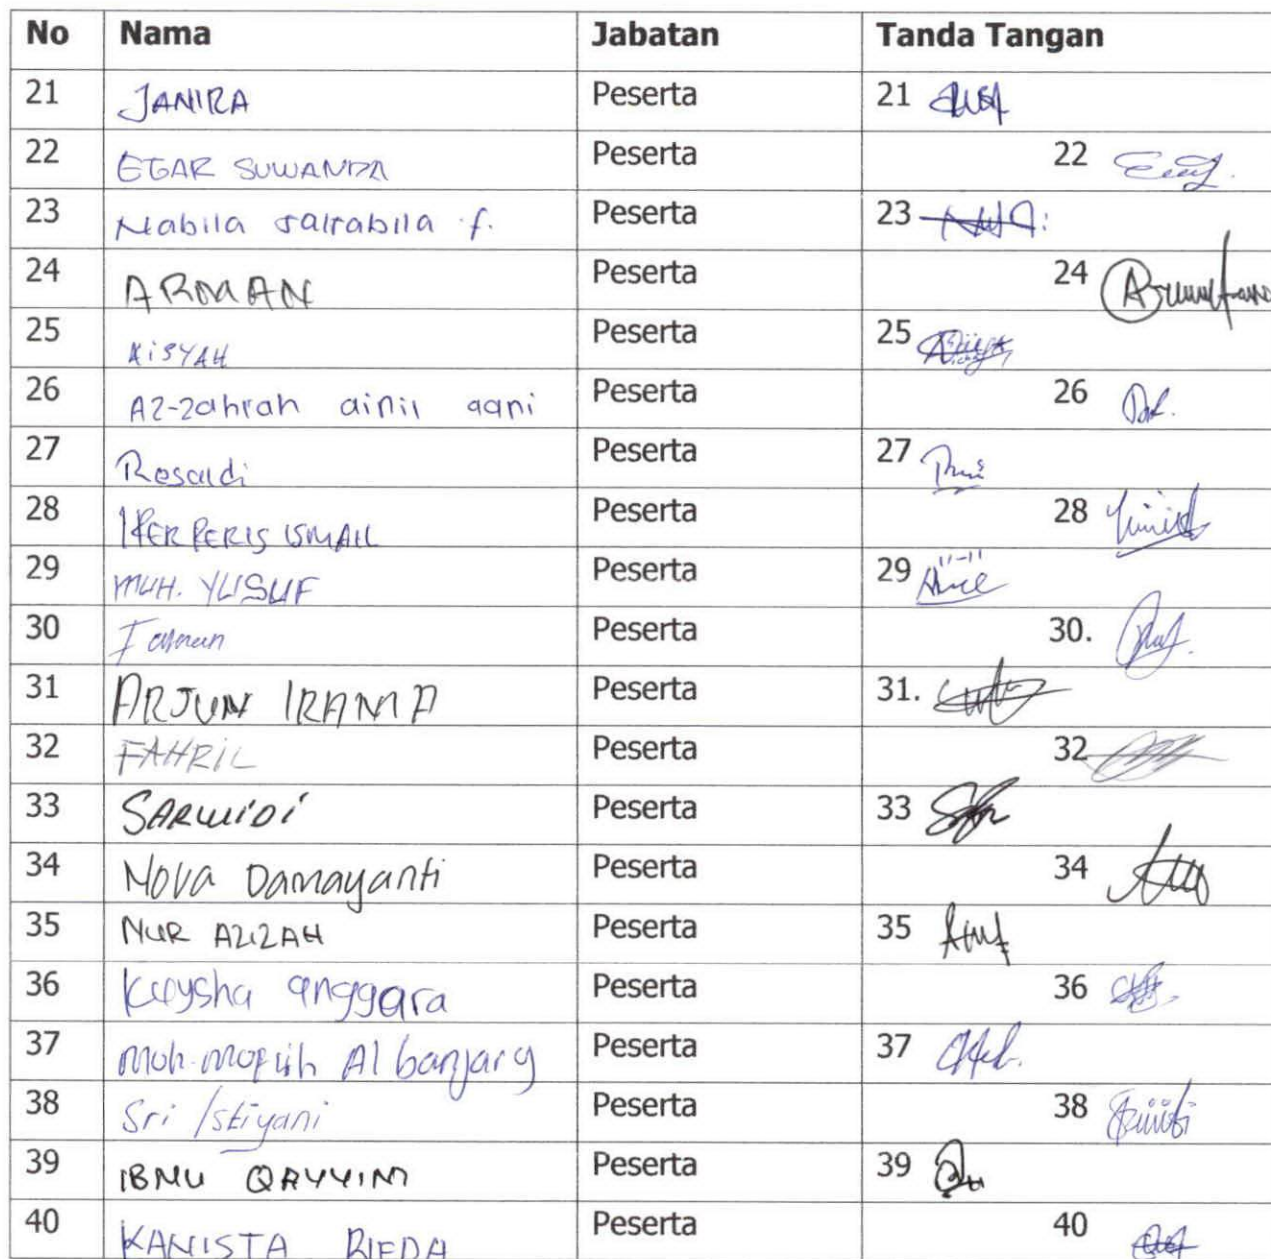 No Nama Jabatan Tanda Tangan
21 JANIRA Peserta 21
22 EGAR SUWANDA Peserta 22
23 Nabila salsabila f. Peserta 23
24 ARMAN Peserta 24
25 AiSYAH Peserta 25
26 AZ-zahrah ainil qani Peserta 26
27 Resaldi Peserta 27
28 IKER PERIS ISMAIL Peserta 28
29 MUH. YUSUF Peserta 29
30 Peserta 30.
31 ARJUN IRAMA Peserta 31.
32 FAHRIL Peserta 32
33 SARWiDi Peserta 33
34 Nova Damayanti Peserta 34
35 NUR AZIZAH Peserta 35
36 anggara Peserta 36
37 Al banjary Peserta 37
38 Sri Istiyani Peserta 38
39 IBNU QAYYIM Peserta 39
40 KANISTA RIEDA Peserta 40